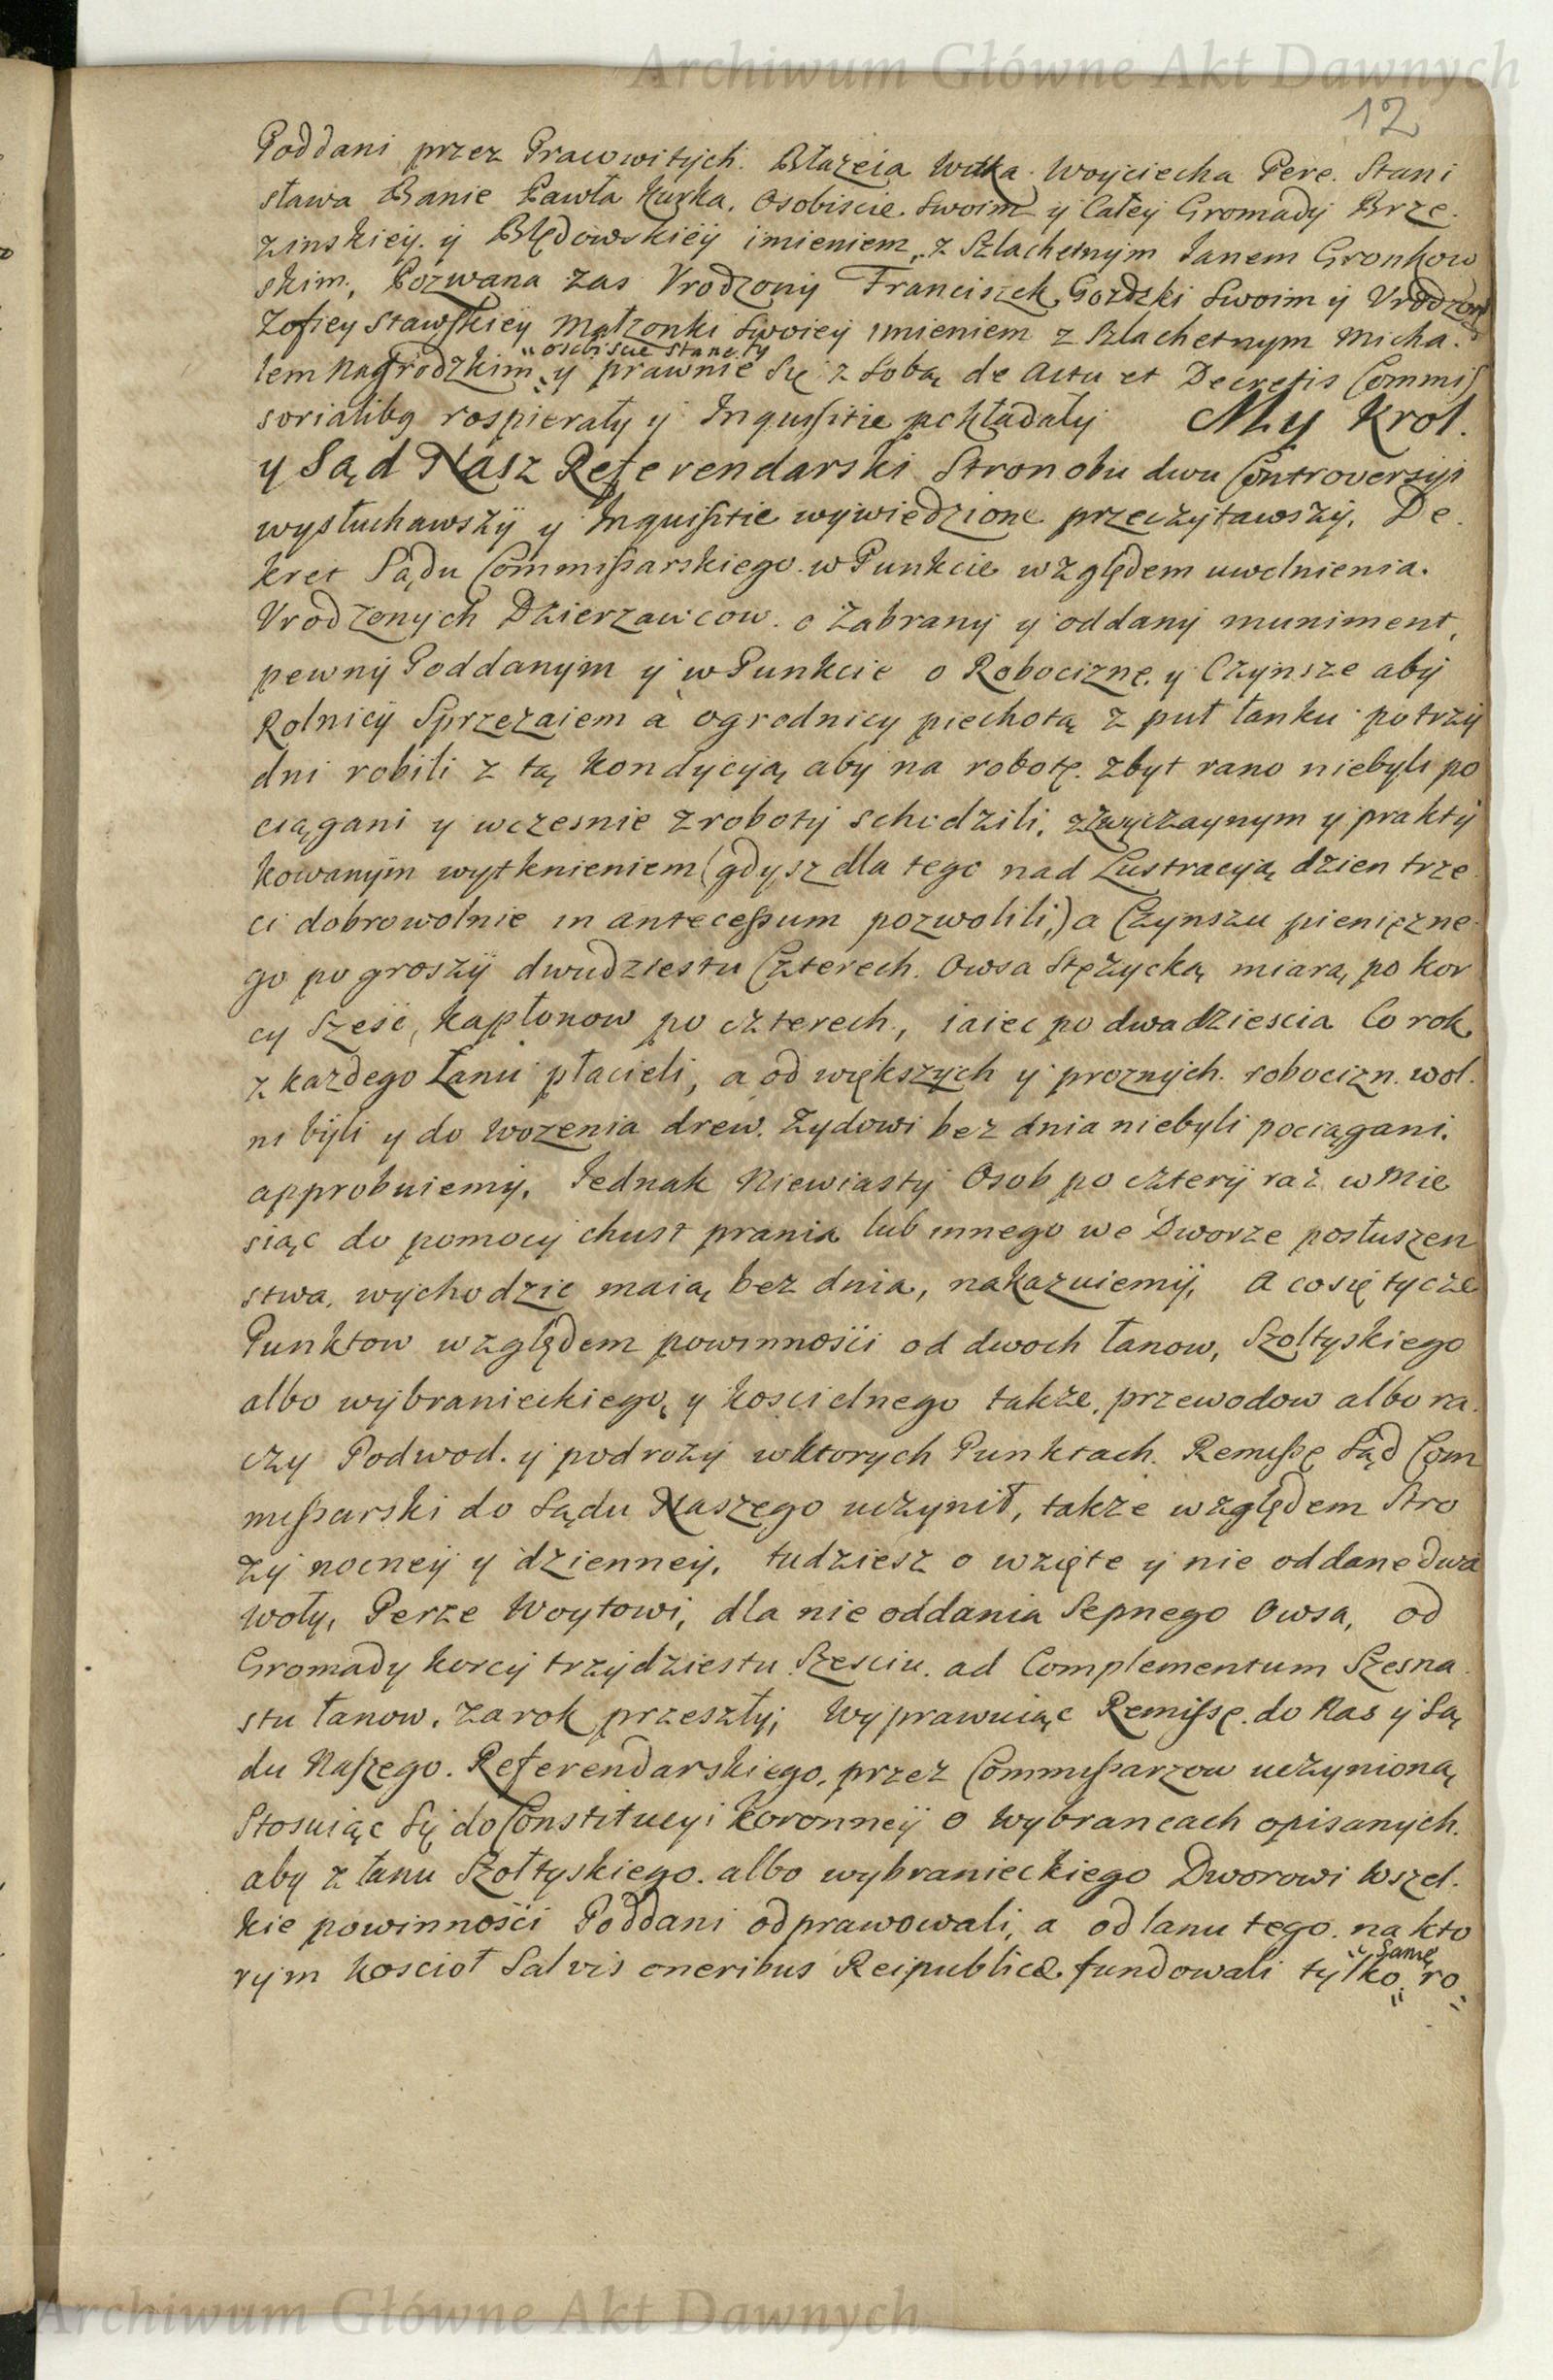 Archiwum Główne Akt Dawnych
12
Poddani przez Pracowitych. Błazeia Witka. Woyciecha Pere. Stani
sława Banie Pawła Kurka. Osobiscie. Swoim y Całey Gromady Brze.
zinskiey. y Błędowskiey imieniem, z Szlachetnym Janem Gronkow
skim, Pozwana zas Vrodzony Franciszek Gozdzki Swoim y Vrodzoney
Zofiey Stawskiey Małzonki Swoiey imieniem z Szlachetnym Micha.
" osobiscie staneły
lem Nagrodzkim " y prawnie Się z Sobą de Actu et Decretis Commis
sorialibq rospierały y Inquisitie pokładały My Krol.
y Sąd Nasz Referendarski Stron obu dwu Controversyi
wysłuchawszy y Inquisitie wywiedzione przeczytawszy, De.
kret Sądu Commissarskiego. w Punkcie względem uwolnienia.
Vrodzonych Dzierzawcow. o Zabrany y oddany muniment,
pewny Poddanym y w Punkcie o Robociznę. y Czynsze aby
Rolnicy Sprzezaiem à ogrodnicy piechotą z puł łanku po trzy
dni robili z tą kondycyją aby na robotę. zbyt rano niebyli po
ciągani y wczesnie z roboty schodzili, zzwyczaynym y prakty
kowanym wytknieniem (gdysz dla tego nad Lustracyją dzien trze
ci dobrowolnie in antecessum pozwolili,) a Czynszu pienięzne
go po groszy dwudziestu Czterech. Owsa Stęzycką miarą po kor
cy Szesć, kapłonow po czterech, iaiec po dwadziescia Co rok
z kazdego Łanu płacieli, a od większych y proznych. robocizn. wol.
ni byli y do Wozenia drew. Zydowi bez dnia niebyli pociągani.
approbuiemy. Jednak Niewiasty Osob po cztery raz w Mie
siąc do pomocy chust prania lub innego we Dworze posłuszen
stwa. wychodzic maią bez dnia, nakazuiemy, A co się tycze
Punktow względem powinnosci od dwoch łanow, Szołtyskiego
albo wybranieckiego, y koscielnego takze. przewodow albo ra.
czy Podwod. y podrozy w ktorych Punktach. Remissę Sąd Com
missarski do Sądu Naszego uczynił, takze względem Stro
zy nocney y dzienney, tudziesz o wzięte y nie oddane dwa
woły, Perze Woytowi, dla nie oddania Sepnego Owsa, od
Gromady korcy trzydziestu Szesciu. ad Complementum Szesna
stu łanow. za rok przeszły; Wyprawuiąc Remissę. do Nas y Są
du Naszego. Referendarskiego. przez Commissarzow uczynioną
Stosuiąc Się do Constitucyi Koronney o Wybrancach opisanych.
aby z łanu Szołtyskiego. albo wybranieckiego Dworowi Wszel.
kie powinnosci Poddani odprawowali, a od łanu tego. na kto
" Samę
rym Koscioł Salvis oneribus Reipublicæ fundowali tylko " ro=
Archiwum Główne Akt Dawnych